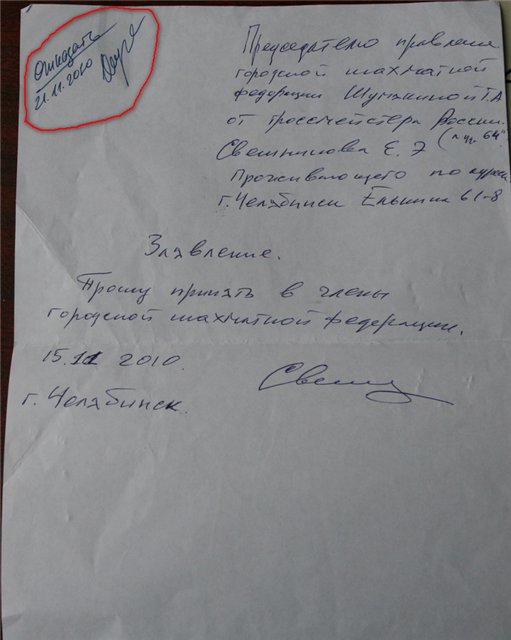 Отказать
21.11.2010
Председателю правления
городской шахматной
федерации Шумякиной Т.А
от гроссмейстера России
Свешникова Е. Э ( "64"
Проживающего по
г. Челябинск Елькина 61-8
Заявление.
Прошу принять в члены
городской шахматной федерации.
15.11 2010.
г. Челябинск.